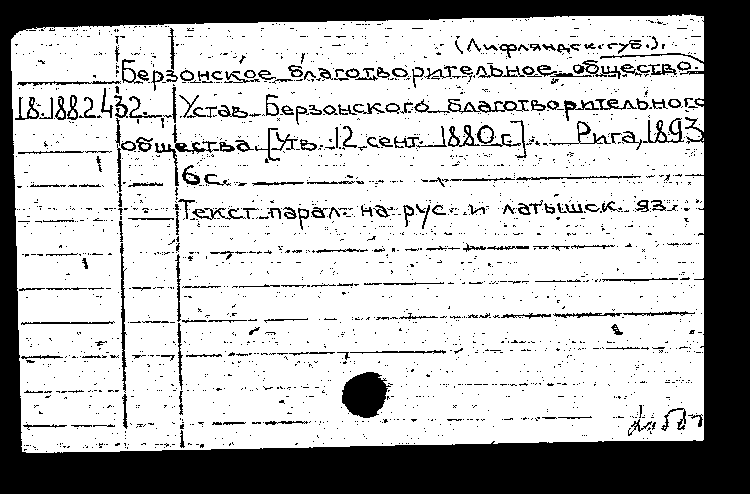 (Лифляндск. губ.).
Берзонское благотворительное общество.
18.188.2.432. Устав Берзонского благотворительного
общества. [Утв. 12 сент. 1880 г.]. Рига, 1893
6 с.
Текст парал. на рус. и латышск. яз.